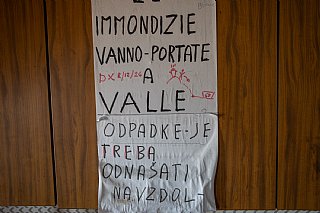 LE
IMMONDIZIE
VANNO-PORTATE
A
VALLE
ODPADKE-JE
TREBA
ODNAŠATI
NAVZDOL-